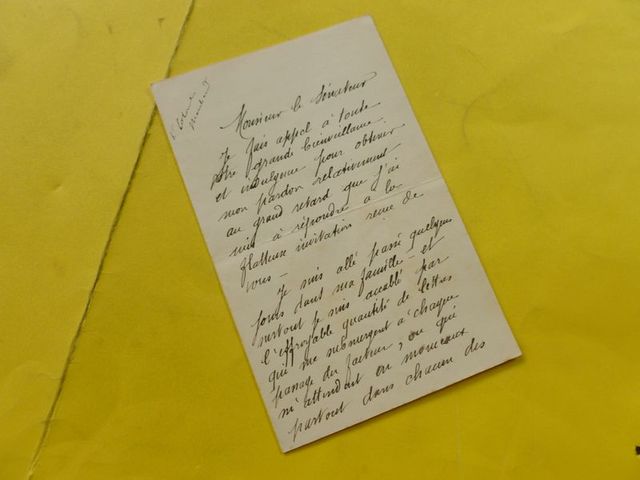 Monsieur le Sénateur
Je fais appel à toute
votre grande bienveillance
et indulgence pour obtenir
mon pardon relativement
au grand retard que j'ai
mis à répondre à la
flatteuse invitation reçue de
vous -
Je suis allé passé quelques
jours dans ma famille - et
surtout je suis accablé par
l'effroyable quantité de lettres
qui me submergent à chaque
passage du facteur, ou qui
m'attendent en monceaux
partout dans chacun des